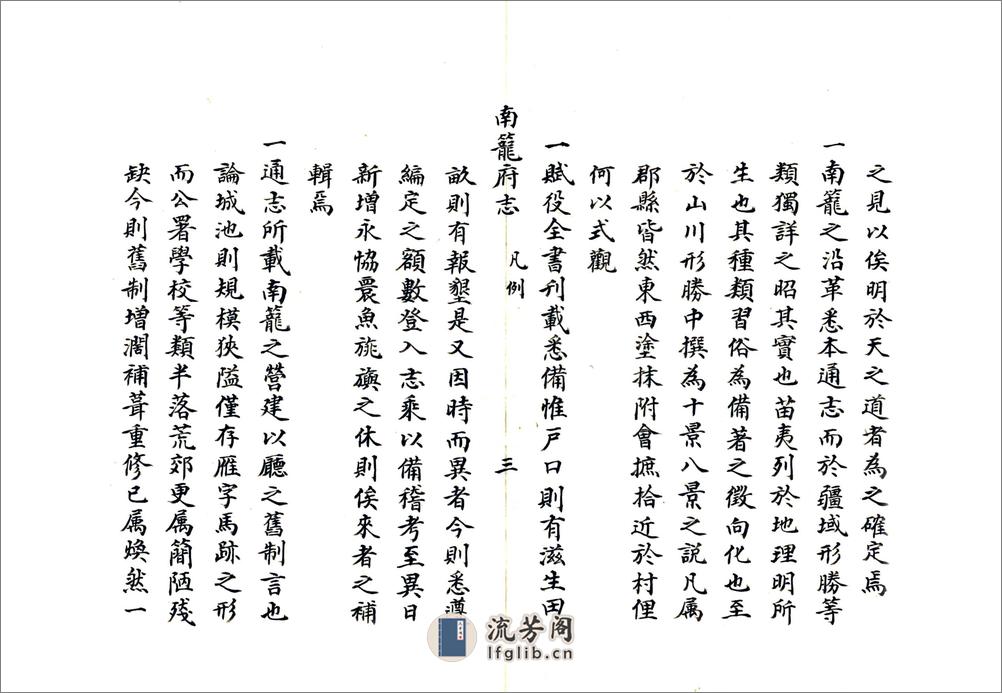 之見以俟明於天之道者為之確定焉
一南籠之沿革悉本通志而於疆域形勝等
類獨詳之昭其實也苗夷列於地理明所
生也其種類習俗為備著之徵向化也至
於山川形勝中撰為十景八景之說凡属
郡縣皆然東西塗抹附會摭拾近於村俚
何以式觀
一賦役全書刊載悉備惟戸口則有滋生田
南籠府志 凡例 三
畝則有報墾是又因時而異者今則悉遵
編定之額數登入志乘以備稽考至異日
新增永協眾魚旐旟之休則俟來者之補
輯焉
一通志所載南籠之營建以廳之舊制言也
論城池則規模狹隘僅存雁字馬跡之形
而公署學校等類半落荒郊更属簡陋殘
缺今則舊制增濶補葺重修已属煥然一
流芳阁
lfglib.cn